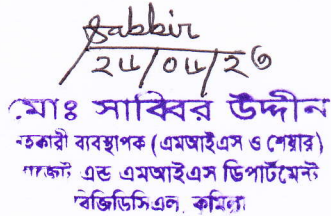 Sabbir
২৪/০৪/২৩
মোঃ সাব্বির উদ্দীন
সহকারী ব্যবস্থাপক (এমআইএস ও শেয়ার)
বাজেট এন্ড এমআইএস ডিপার্টমেন্ট
বিজিডিসিএল, কুমিল্লা